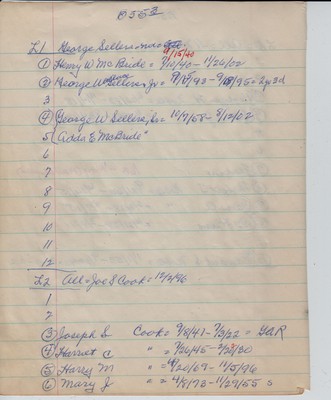 L1 George Sellers
11/15/40
① Henry W McBride = 9/10/40 - 11/26/02
② George W Sellers, Jr = - = 2y 3d
3
④ George W Sellers, Sr = 10/7/58 - 8/12/02
5 Adda E McBride"
6
7
8
9
10
11
12
L2 All = Joe S Cook = 12/2/96
1
2
③ Joseph S Cook = 9/8/47 - 7/3/22 = GAR
④ Harriet C " = 7/26/45 -
⑤ Harry M " = /20/69 - 11/5/96
⑥ Mary J " = 4/8/73 - 11/29/55 s